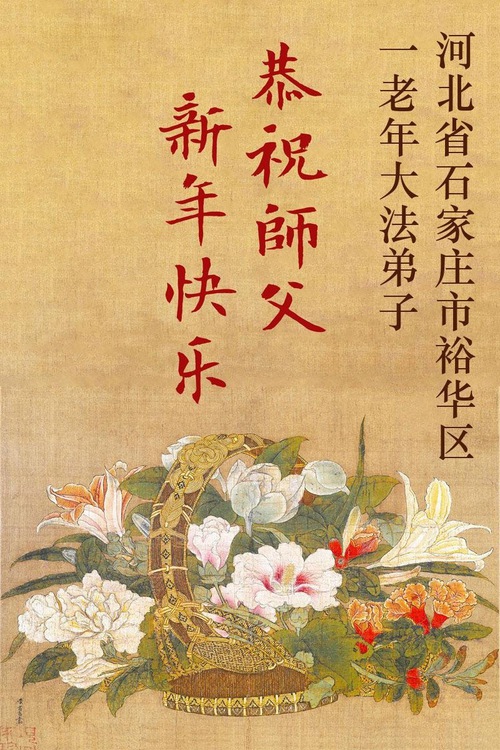 河北省石家庄市裕华区
一老年大法弟子
恭祝師父
新年快乐